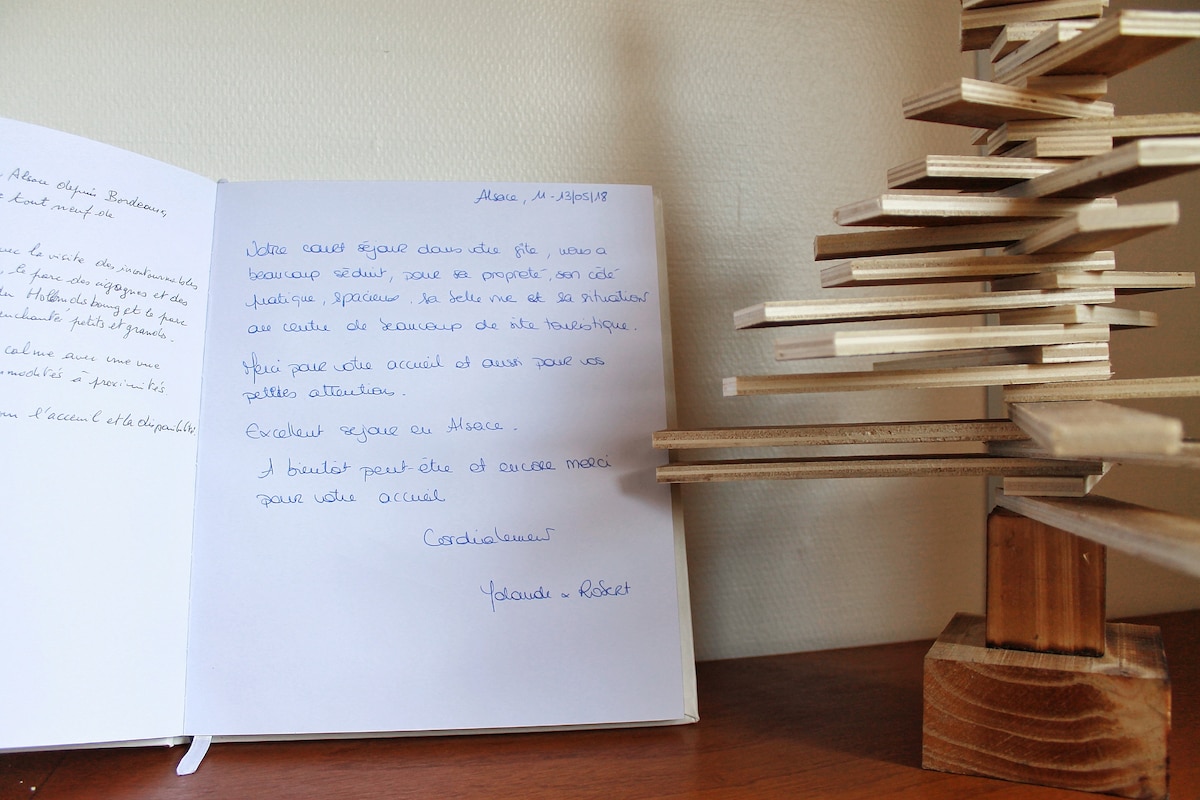 Alsace depuis Bordeaux,
tout neuf de
avec la visite des incontournables
, le parc des cigognes et des
du Holandsbourg et le parc
enchanté petits et grands.
calme avec une vue
modités à proximités
l'acceuil et la disponibilité.
Alsace, 11 - 13/05/18
Notre court séjour dans votre gîte, nous a
beaucoup séduit, pour sa propreté, son côté
pratique, spacieux, sa belle vue et sa situation
au centre de beaucoup de site touristique.
Merci pour votre accueil et aussi pour vos
petites attentions.
Excellent séjour en Alsace.
A bientôt peut-être et encore merci
pour votre accueil
Cordialement
Yolande & Robert